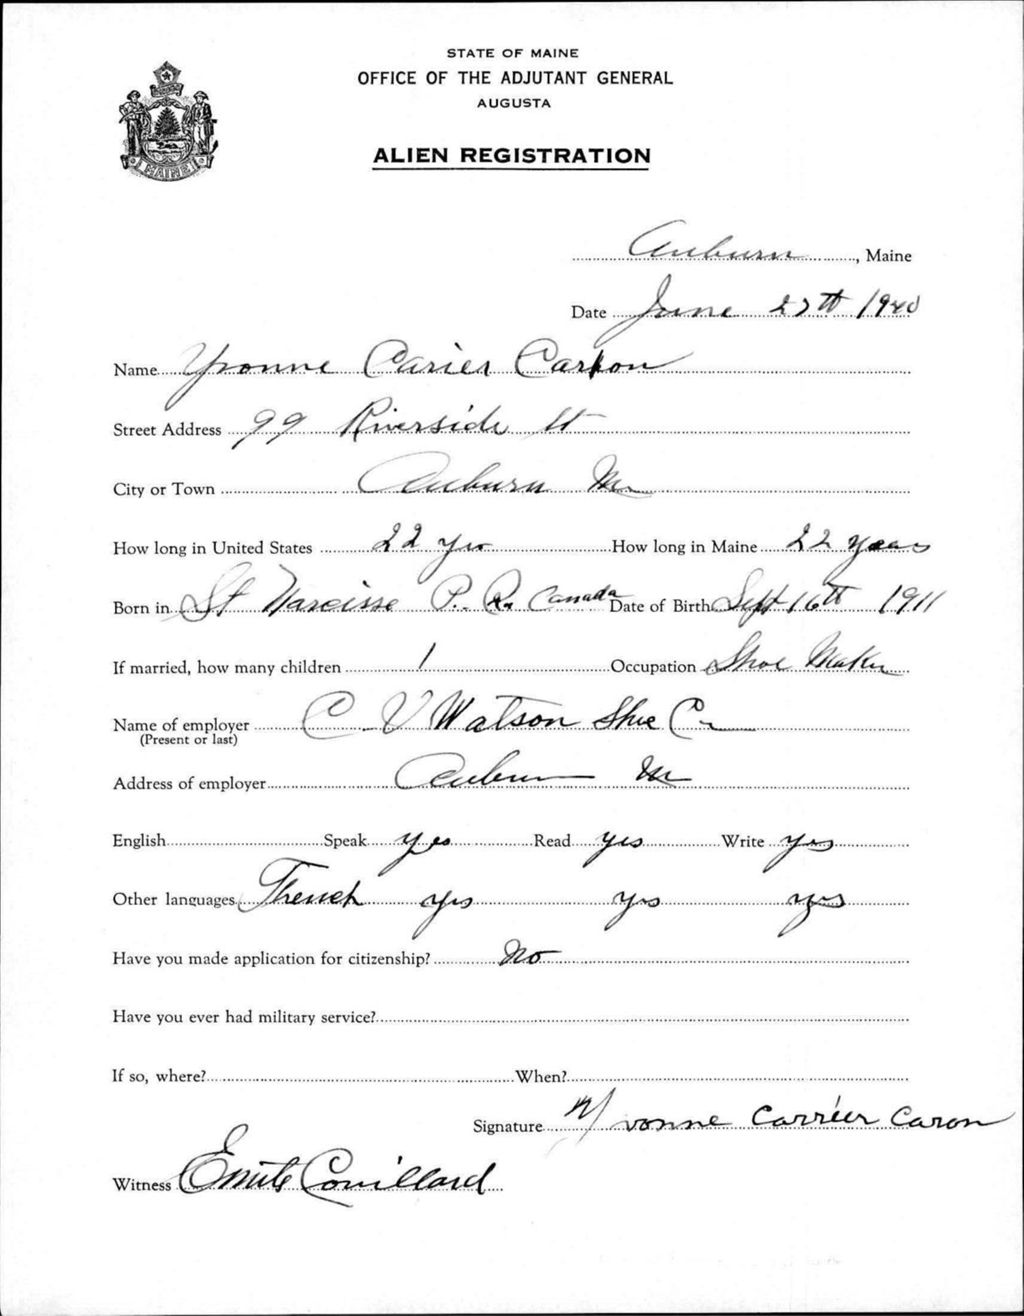 STATE OF MAINE
OFFICE OF THE ADJUTANT GENERAL
AUGUSTA
ALIEN REGISTRATION
MAINE
Auburn, Maine
Date June 27th 1940
Name Yvonne Carier Caron
Street Address 99 Riverside St
City or Town Auburn Me
How long in United States 22 yrs How long in Maine 22 years
Born in St Narcisse P. Q. Canada Date of Birth Sept 16th 1911
If married, how many children 1 Occupation Shoe Maker
Name of employer C V Watson Shoe Co
(Present or last)
Address of employer Auburn Me
English Speak yes Read yes Write yes
Other languages French yes yes yes
Have you made application for citizenship? No
Have you ever had military service?
If so, where? When?
Signature Yvonne Carrier Caron
Witness Emile Couillard